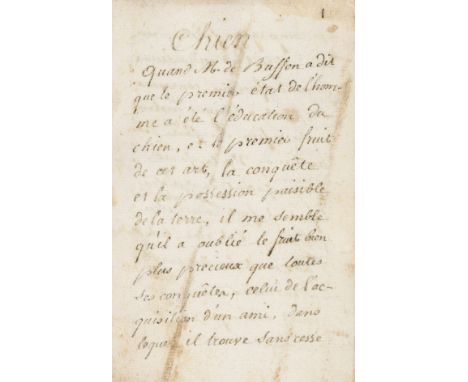 1
Chien
Quand M. de Buffon a dit
que le premier état de l'hom-
me a été l'éducation du
chien, et le premier fruit
de cet art, la conquête
et la possession paisible
de la terre, il me semble
qu'il a oublié le fruit bien
plus precieux que toutes
ses conquêtes, celui de l'ac-
quisition d'un ami, dans
lequel il trouve sans cesse